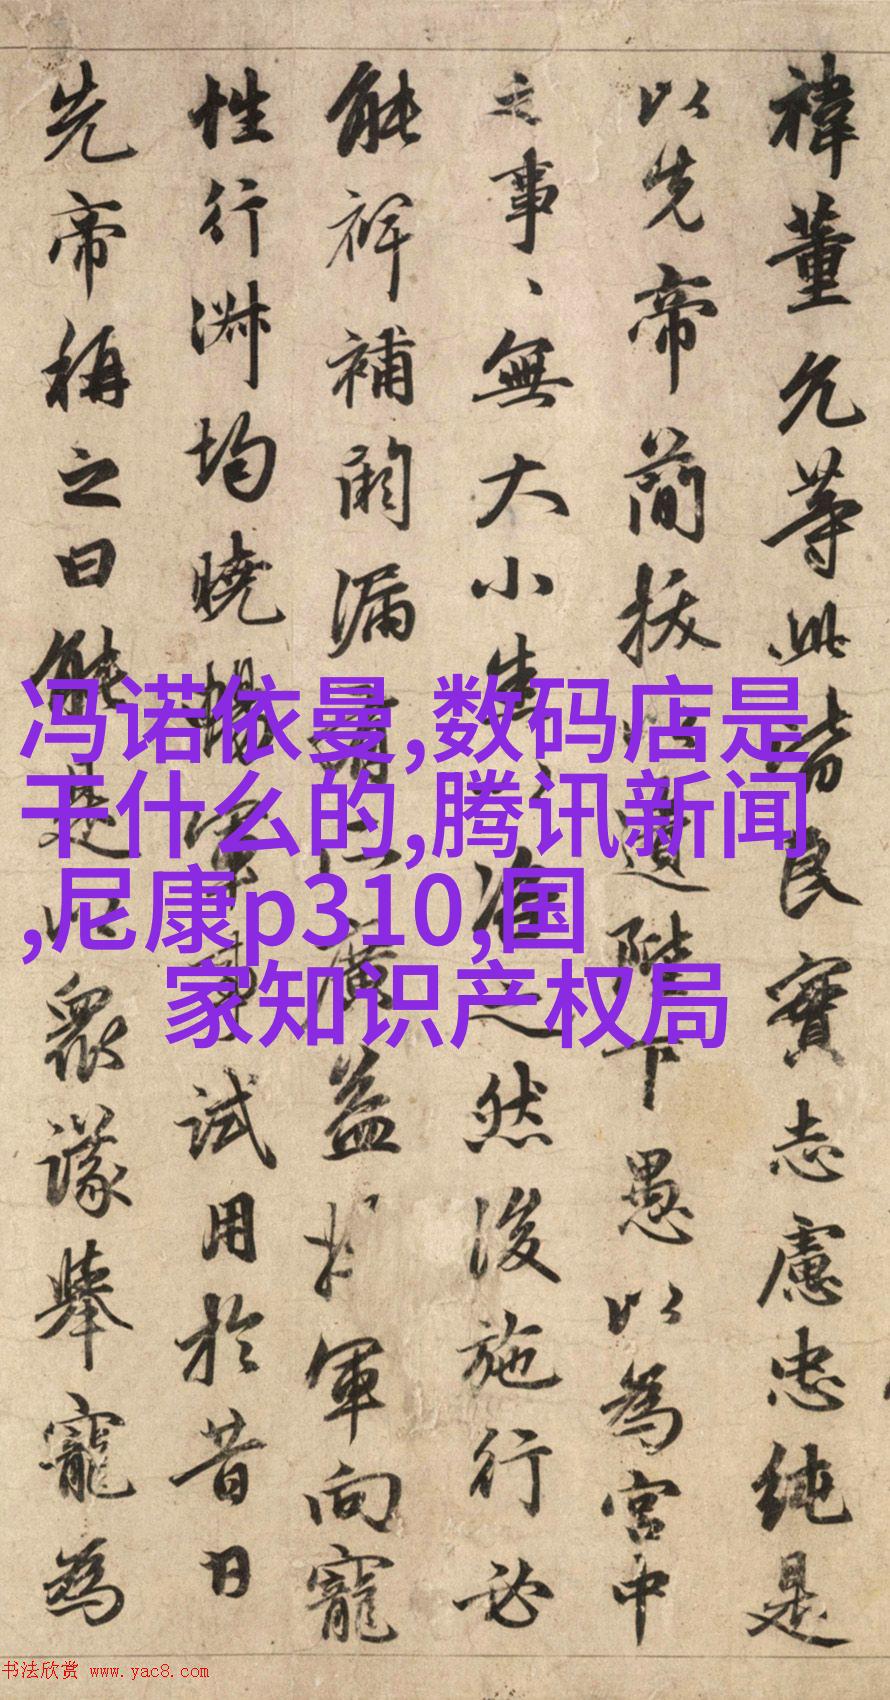 禕董允等此皆良實志慮忠純是
以先帝簡拔以遺陛下愚以為宮中
之事、無大小之然後施行必
能裨補闕漏有廣益將軍向寵
性行淑均曉暢軍事試用於昔日
先帝稱之曰能是以衆議舉寵為
冯诺依曼,数码店是
干什么的,腾讯新闻
,尼康p310,国
家知识产权局
书法欣赏 www.yac8.com